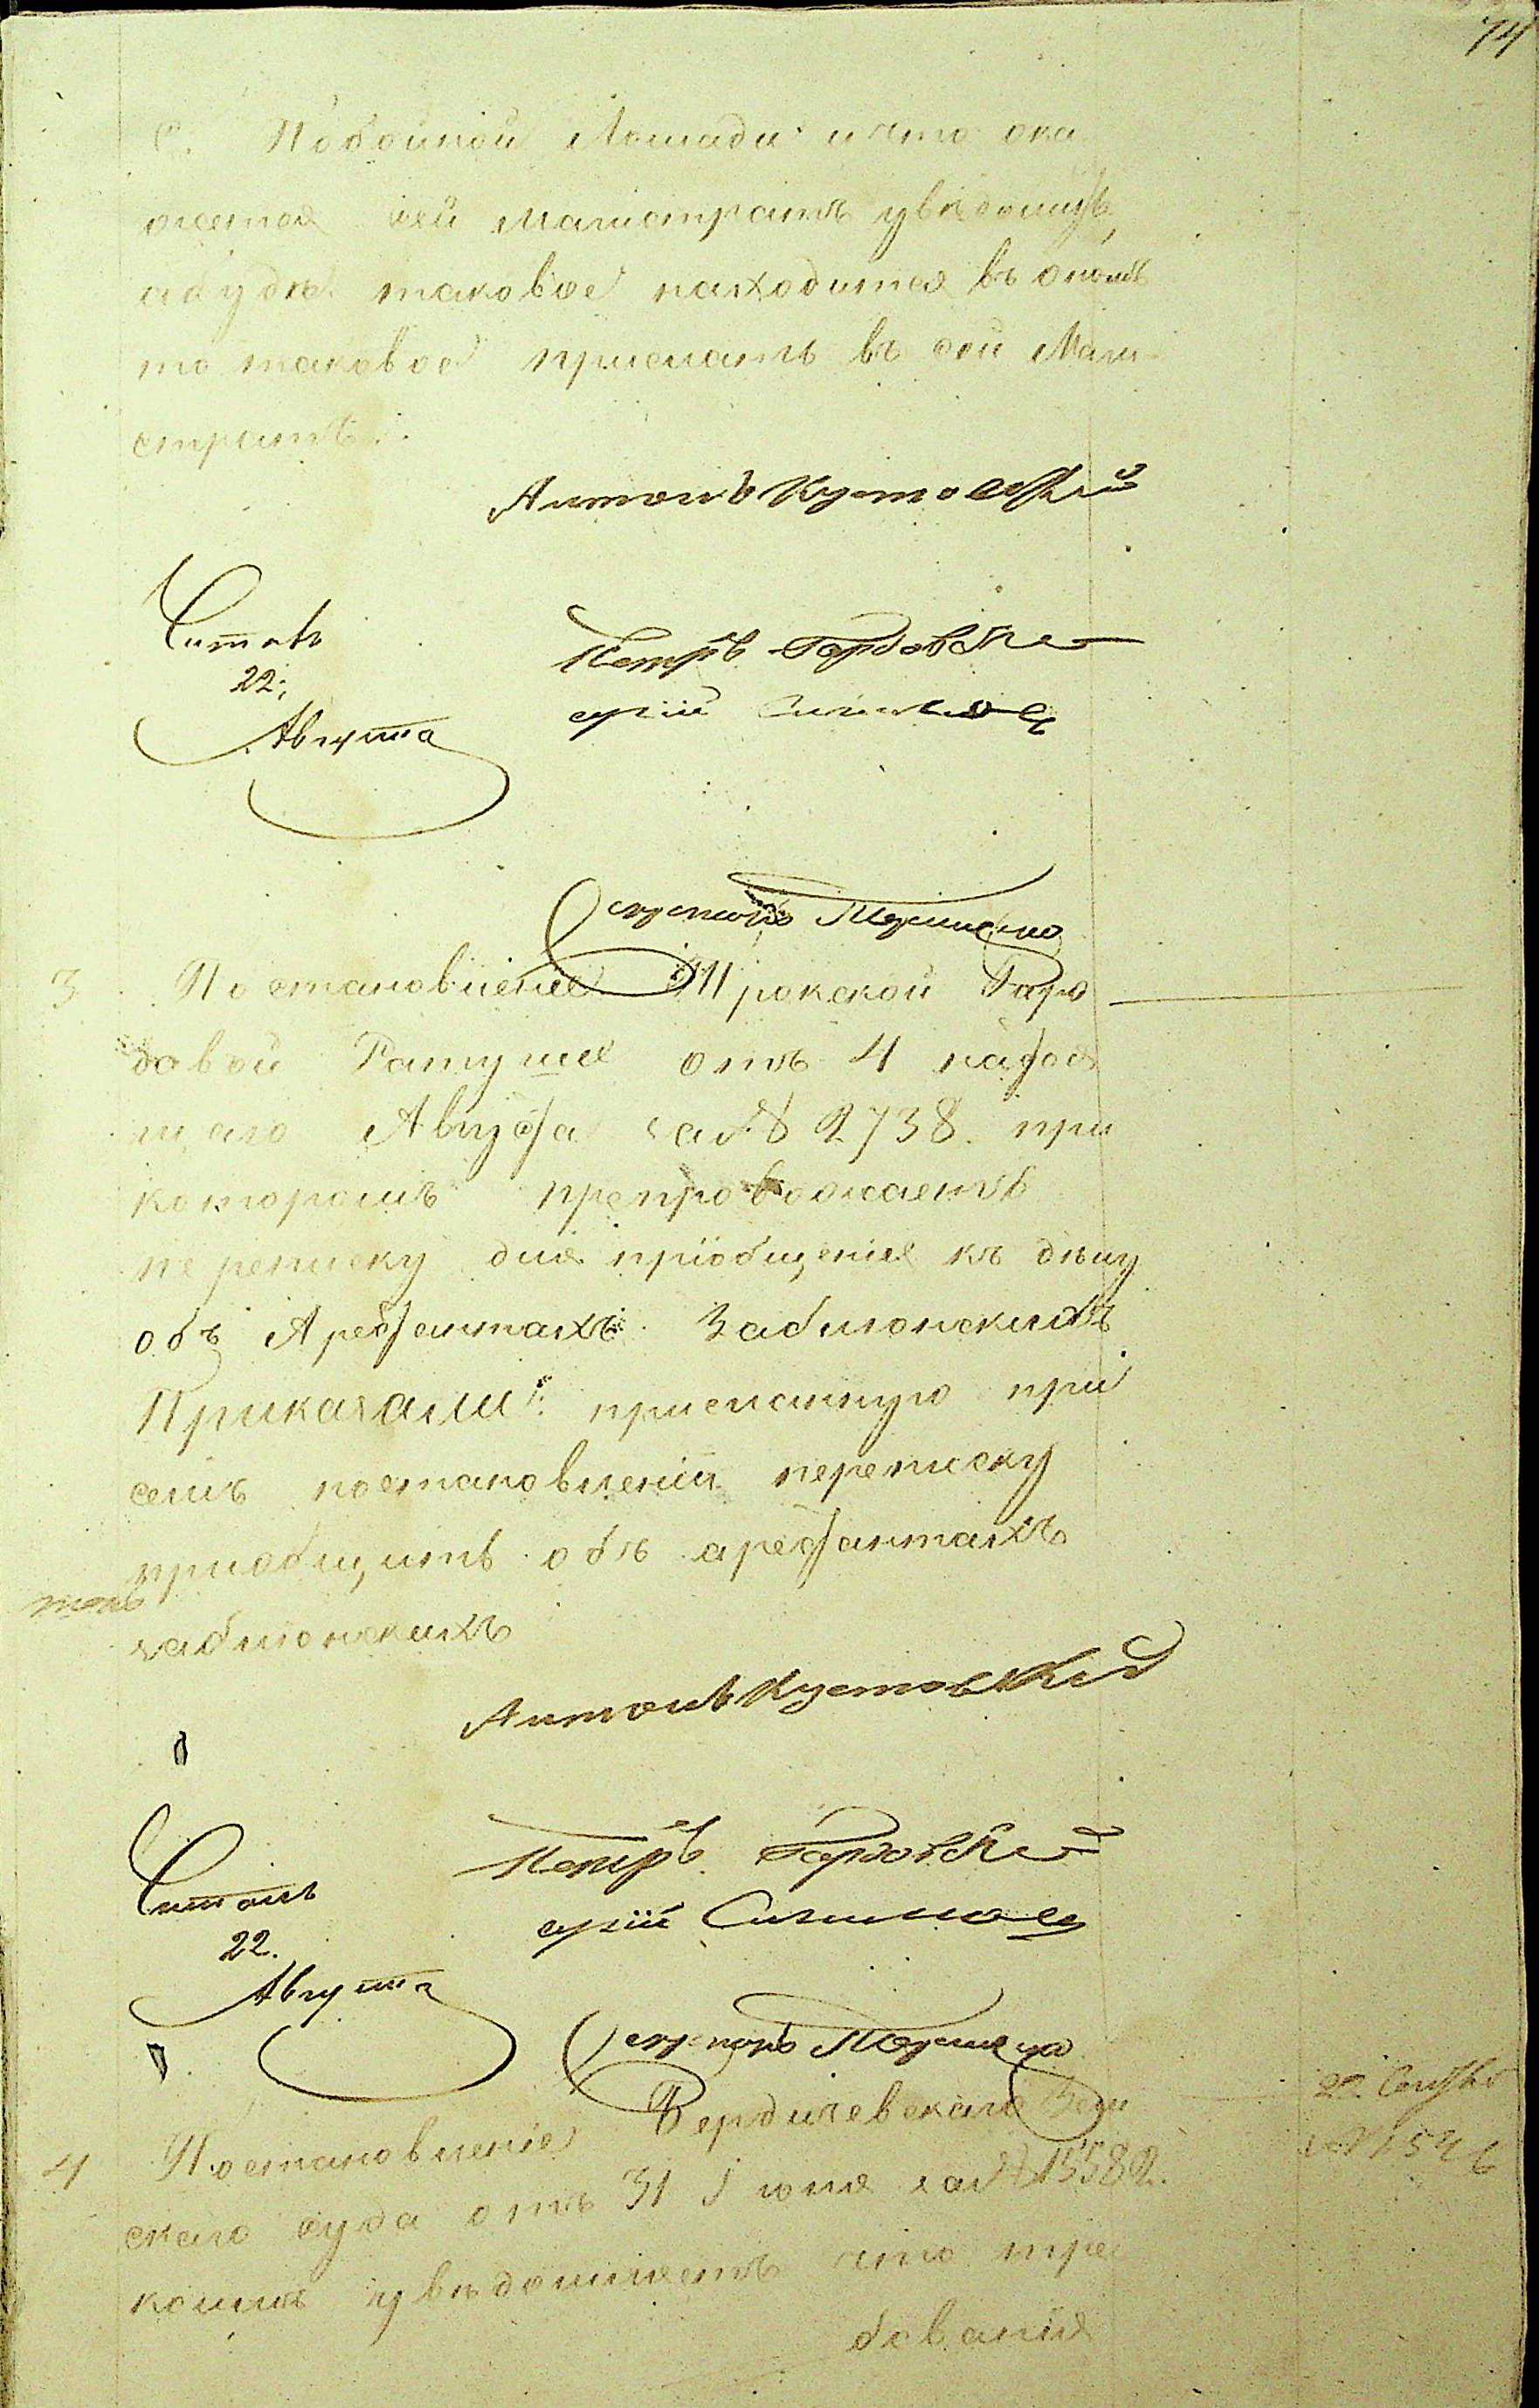 74
С. Побойной Лошади и что ока
жется сей Магистратъ увѣдомить,
а буде таковое находится въ ономъ
то таковое прислать въ сей Маги-
стратъ.
Антонъ Кустовскій
Читалъ
22;
Августа
Петръ Гордовскі
Секретарь
3 Постановленіе Трокской Горо
довой Ратуши отъ 4 настоя
щаго Августа за № 2738. при
которомъ препровождаетъ
переписку для пріобщенія къ дѣлу
объ Арестантахъ Заблонскихъ
Приказали: присланную при
семъ постановленіи переписку
приобщить объ арестантахъ
заблонскихъ
Антонъ Кустовскій
Читалъ
22.
Августа
Петръ Гордовскі
Секретарь
4 Постановленіе Бердичевскаго Зем
скаго суда отъ 31 Іюля за № 15582.
коимъ увѣдомляетъ что тре
бованія